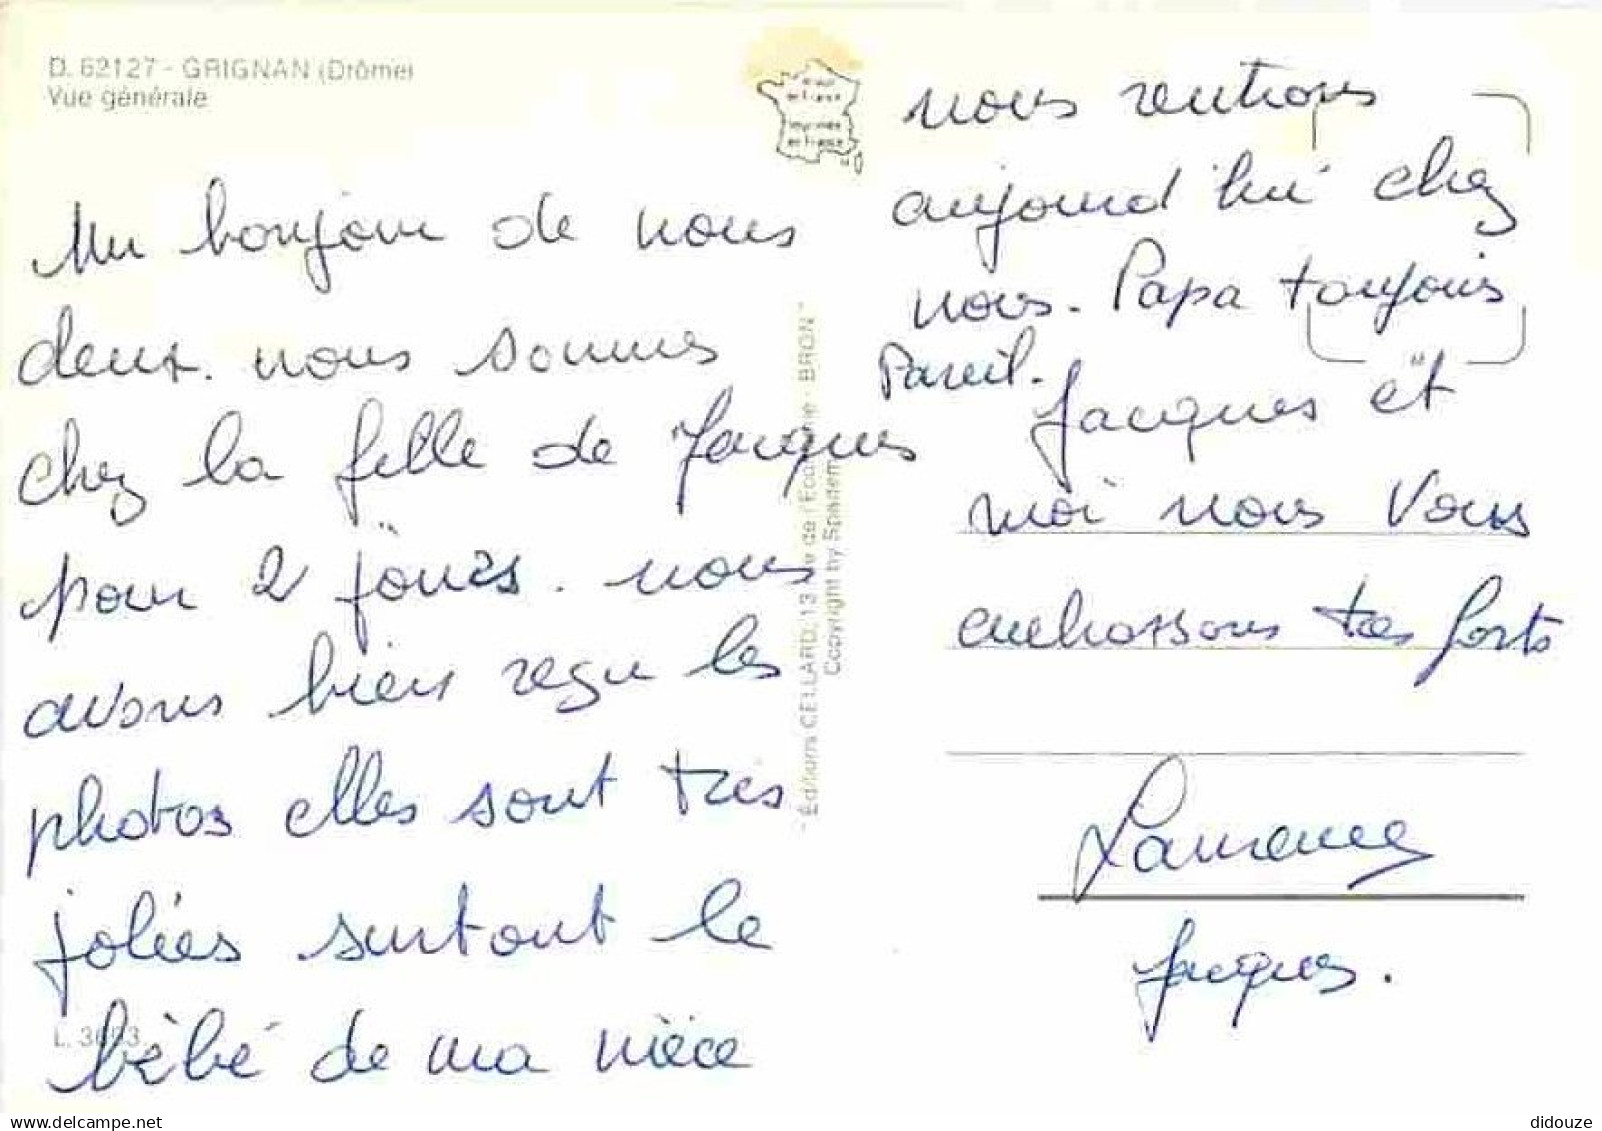 D. 62127 - GRIGNAN (Drôme)
Vue générale
en France
imprimée
en France
Un bonjour de nous
deux. nous sommes
chez la fille de Jacques
pour 2 jours. nous
avons bien reçu les
photos elles sont très
jolies surtout le
bèbé de ma nièce
L. 3693
"Éditions CELLARD, 13 de l'Eco - BRON"
Copyright by Spadem
nous rentrons
aujourd'hui chez
nous. Papa toujours
Pareil.
Jacques et
moi nous vous
embrassons tres forts
Laurence
Jacques.
www.delcampe.net
didouze